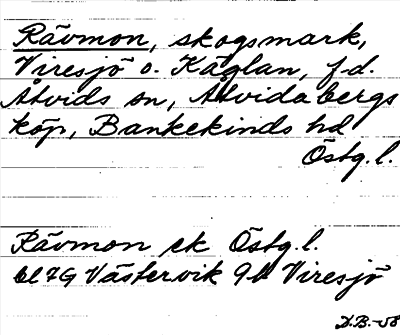 Rävmon, skogsmark,
Viresjö o. Käglan, f.d.
Åtvids sn, Åtvidabergs
köp, Bankekinds hd
Östg.l.
Rävmon ek Östg.l.
bl 7G Västervik 9b Viresjö
D.B.-58